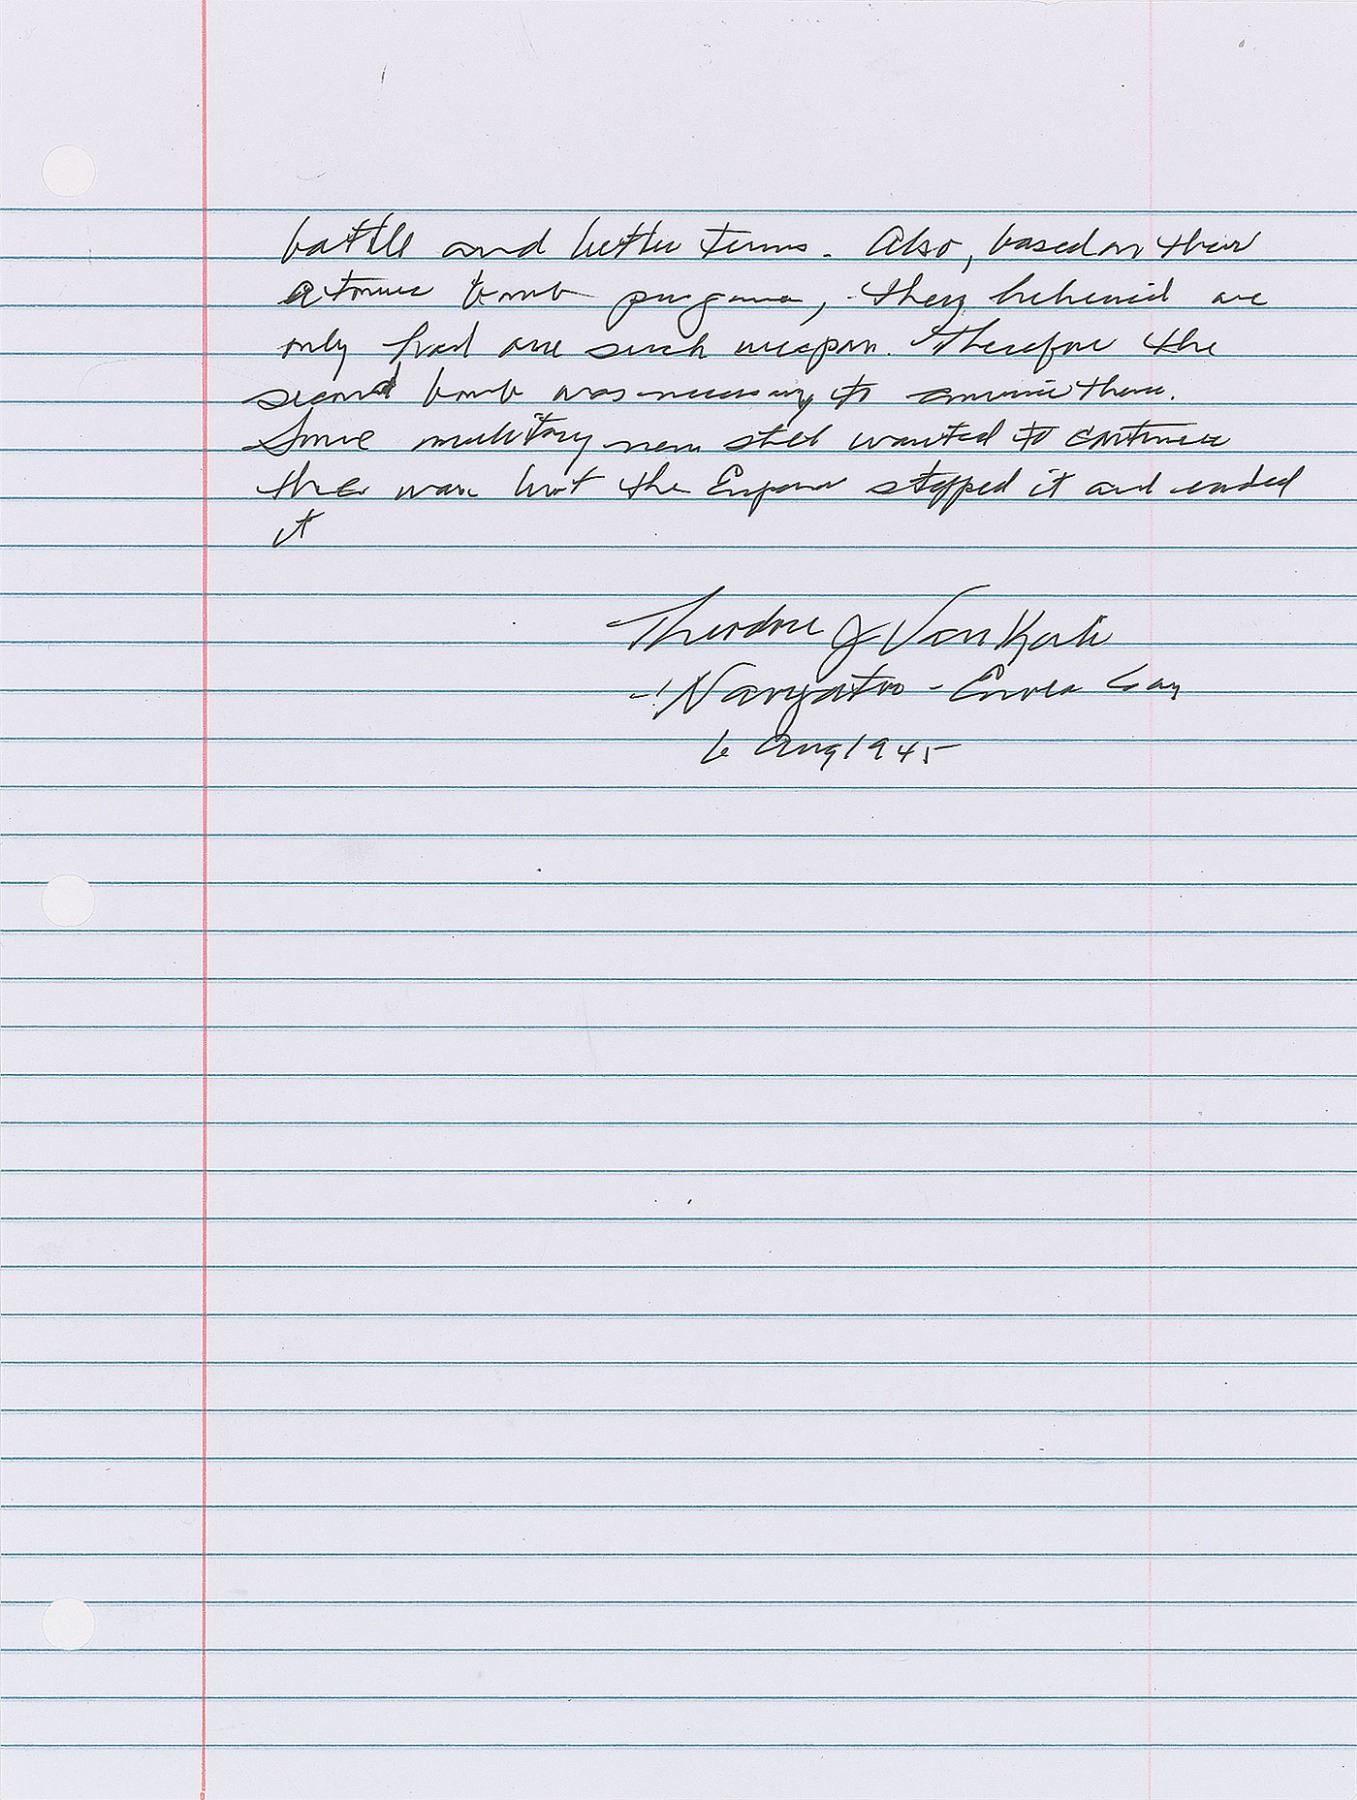 battle and better terms. Also, based on their
atomic bomb program, they believed we
only had one such weapon. Therefore the
second bomb was necessary to convince them.
Some military men still wanted to continue
the war but the Emperor stopped it and ended
it
Theodore J Van Kirk
Navigator - Enola Gay
6 Aug 1945